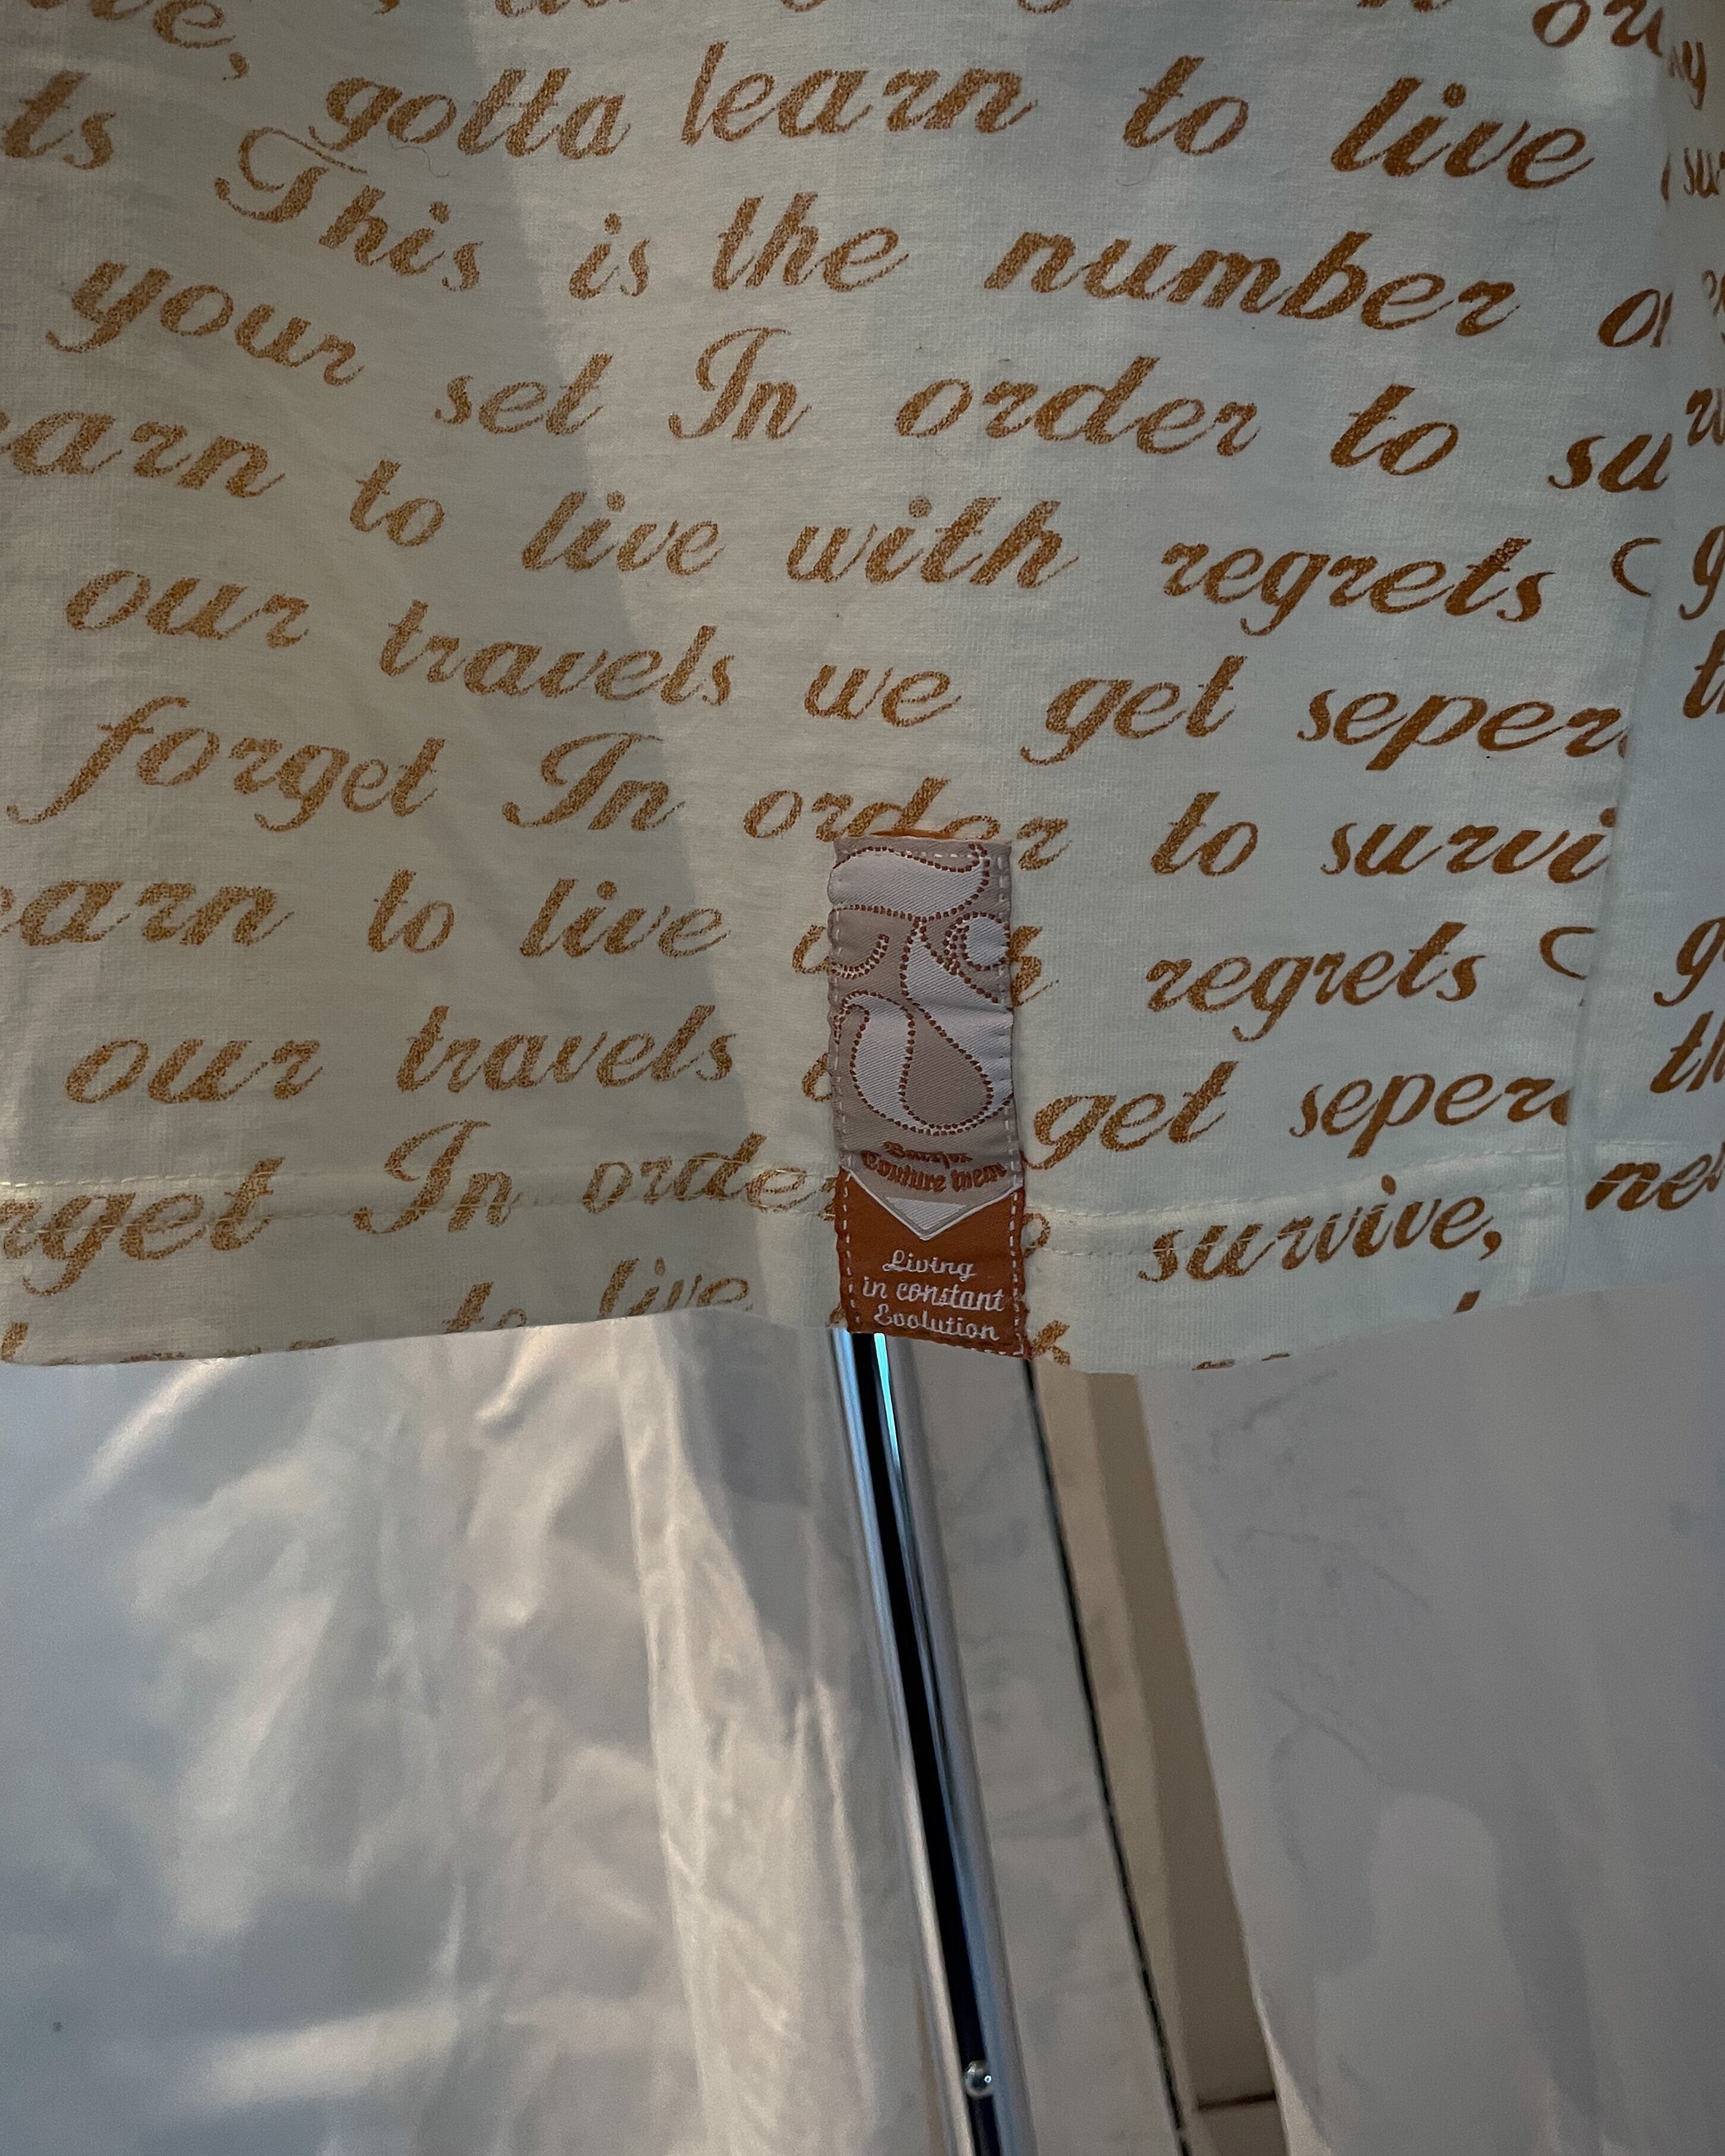 gotta learn to live
This is the number
your set In order to su
earn to live with regrets
our travels we get seper
forget In order to survi
earn to live regrets
our travels get seper
rget In order survive,
to live
Couture Wear
Living
in constant
Evolution